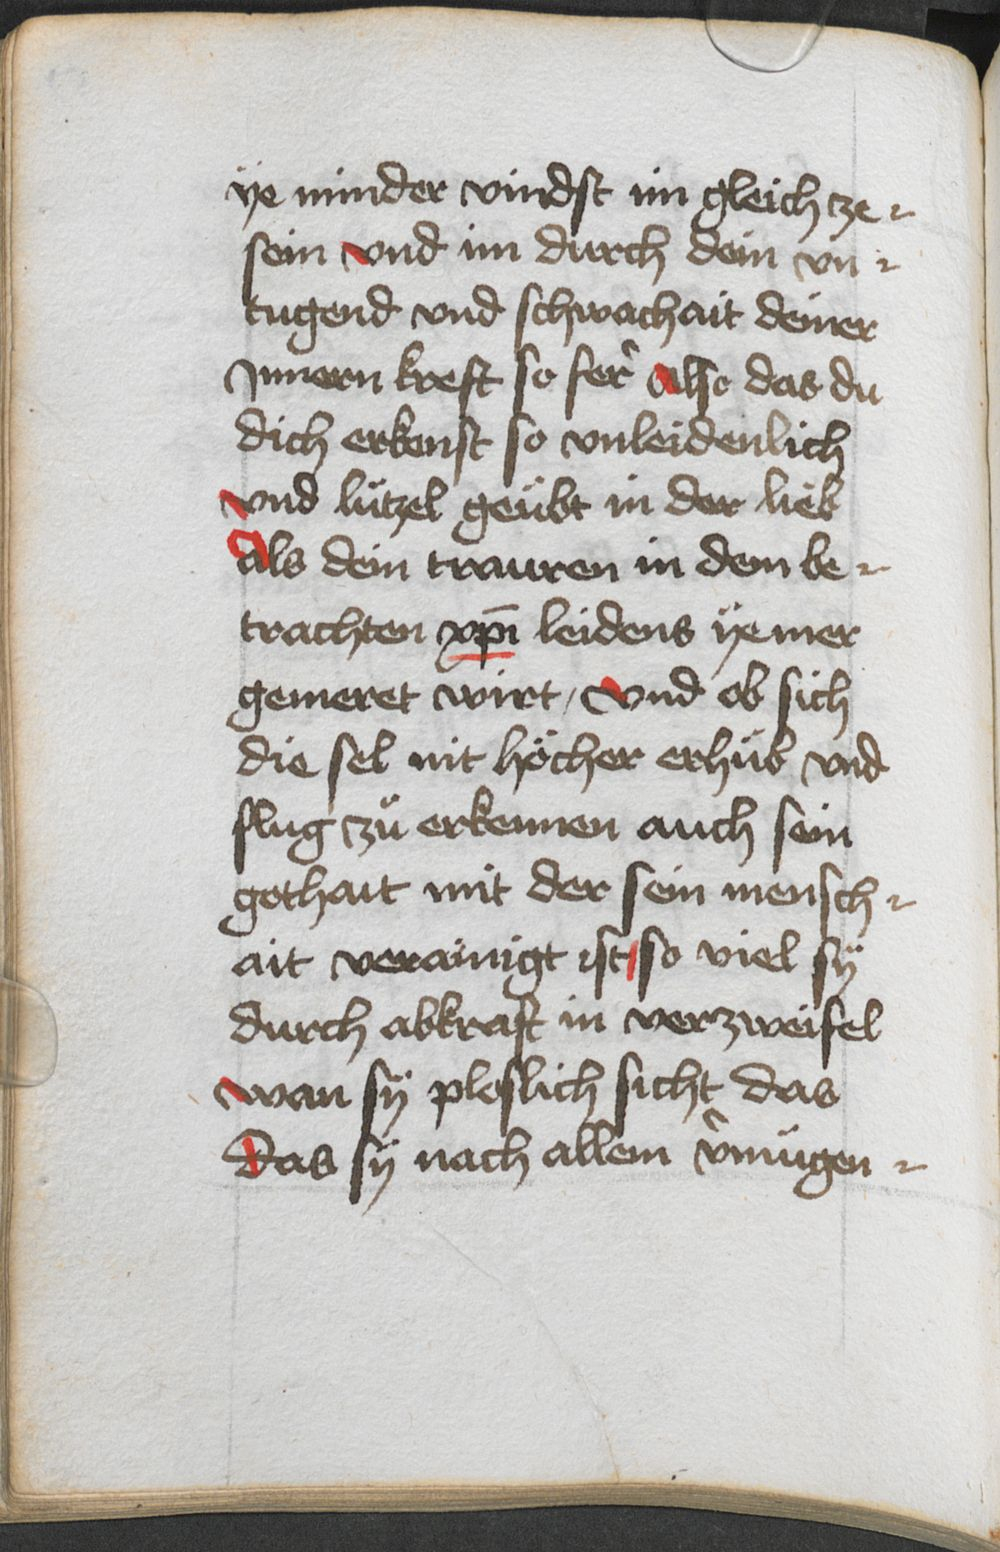 ÿe minder vindst im gleich ze-
sein vnd im durch dein vn-
tugend vnd schwachait deiner
Innern kreft so fer̓ also das du
dich erkenst so vnleidenlich
vnd lützel geübt in der lieb
als dein trauren in dem be-
trachten xp̄i leidens ÿe mer
gemeret wirt / vnd ob sich
die sel nit höcher erhüb vnd
flug zů erkennen auch sein
gothait mit der sein mensch-
ait verainigt ist so viel sÿ
durch abkraft in verzweifel
wan sÿ ploslich sicht das
das sÿ nach allem v̓mügen-